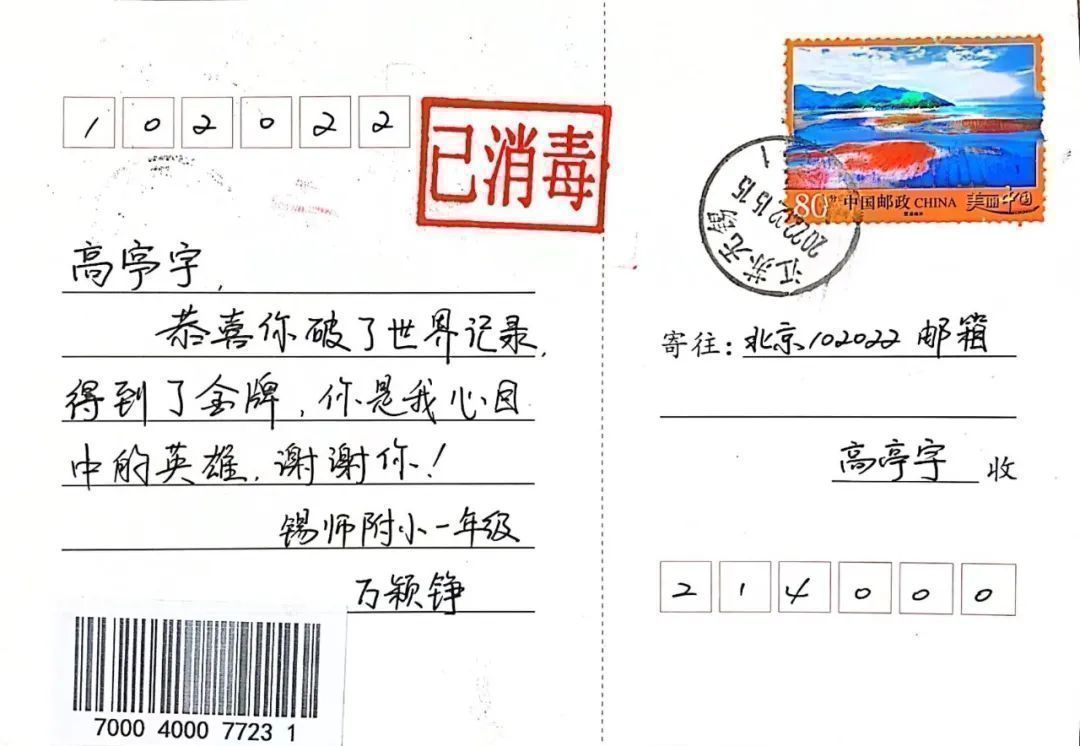 102022
已消毒
80分 中国邮政 CHINA 美丽中国
江苏无锡
2022.02.15.15
1
高亭宇,
恭喜你破了世界记录,
得到了金牌,你是我心目
中的英雄,谢谢你!
锡师附小一年级
万颖铮
7000 4000 7723 1
寄往:北京102022邮箱
高亭宇 收
214000